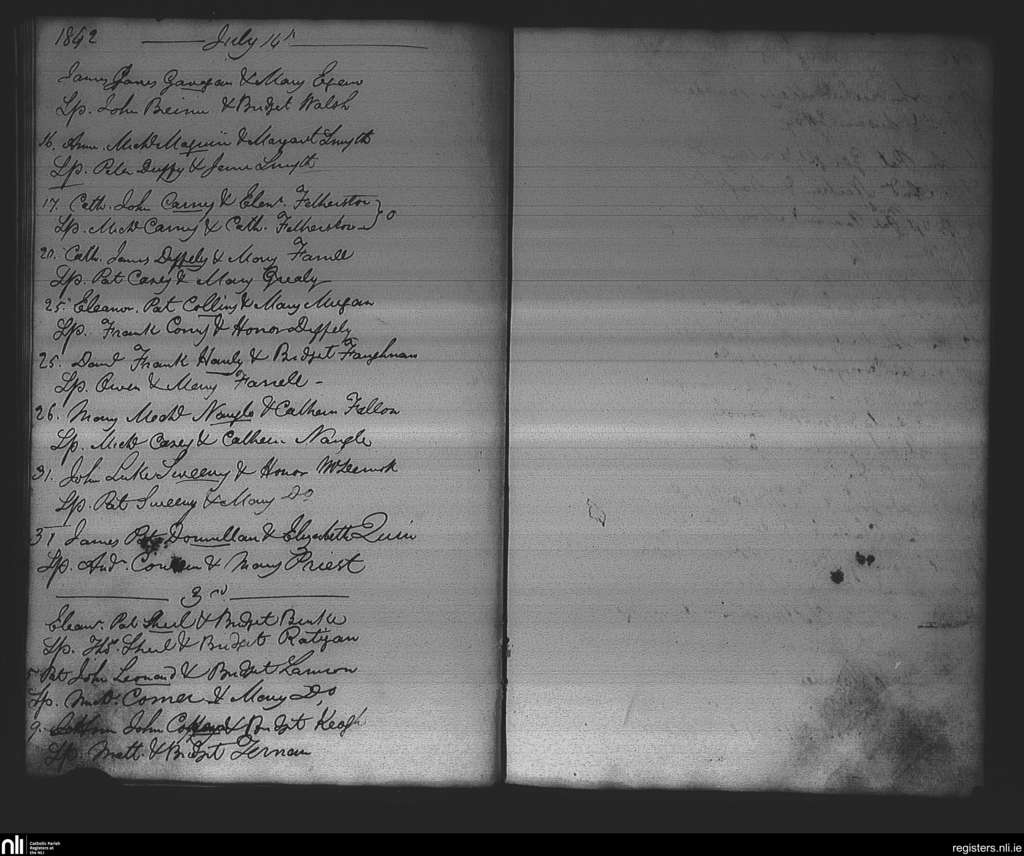 1842 July 14th
James James Gavagan & Mary Egan
Sp. John Beirne & Bridget Walsh
16. Anne. Michl Maguire & Margaret Smyth
Sp. Peter Duffy & Jane Smyth
17. Cath. John Carney & Elenr. Fetherston
Sp. Michl Carney & Cath. Fetherston
20. Cath. James Diffely & Mary Farrell
Sp. Pat Casey & Mary Grealy
25. Eleanor. Pat Collins & Mary Murgan
Sp. Frank Conry & Honor Diffely
25. Frank Hanly & Bridget Faughnan
Sp. Owen & Mary Farrell
26. Mary Michl Nangle & Cathern Fallon
Sp. Michl Casey & Cathern. Nangle
31. John Luke Sweeny & Honor
Sp. Pat Sweeny & Mary Do
31 James Pat Donnellan & Elizabeth Quin
Sp. Andw. & Mary Priest
3rd
Eleanr. Pat Sheil & Bridget
Sp. Thos. Sheil & Bridget Ratigan
5 Pat John Leonard & Bridget
Sp. Comer & Mary Do
9. John & Bridget Keogh
Sp. Matt. & Bridget Ternan
nli Catholic Parish
Registers at
the NLI
registers.nli.ie